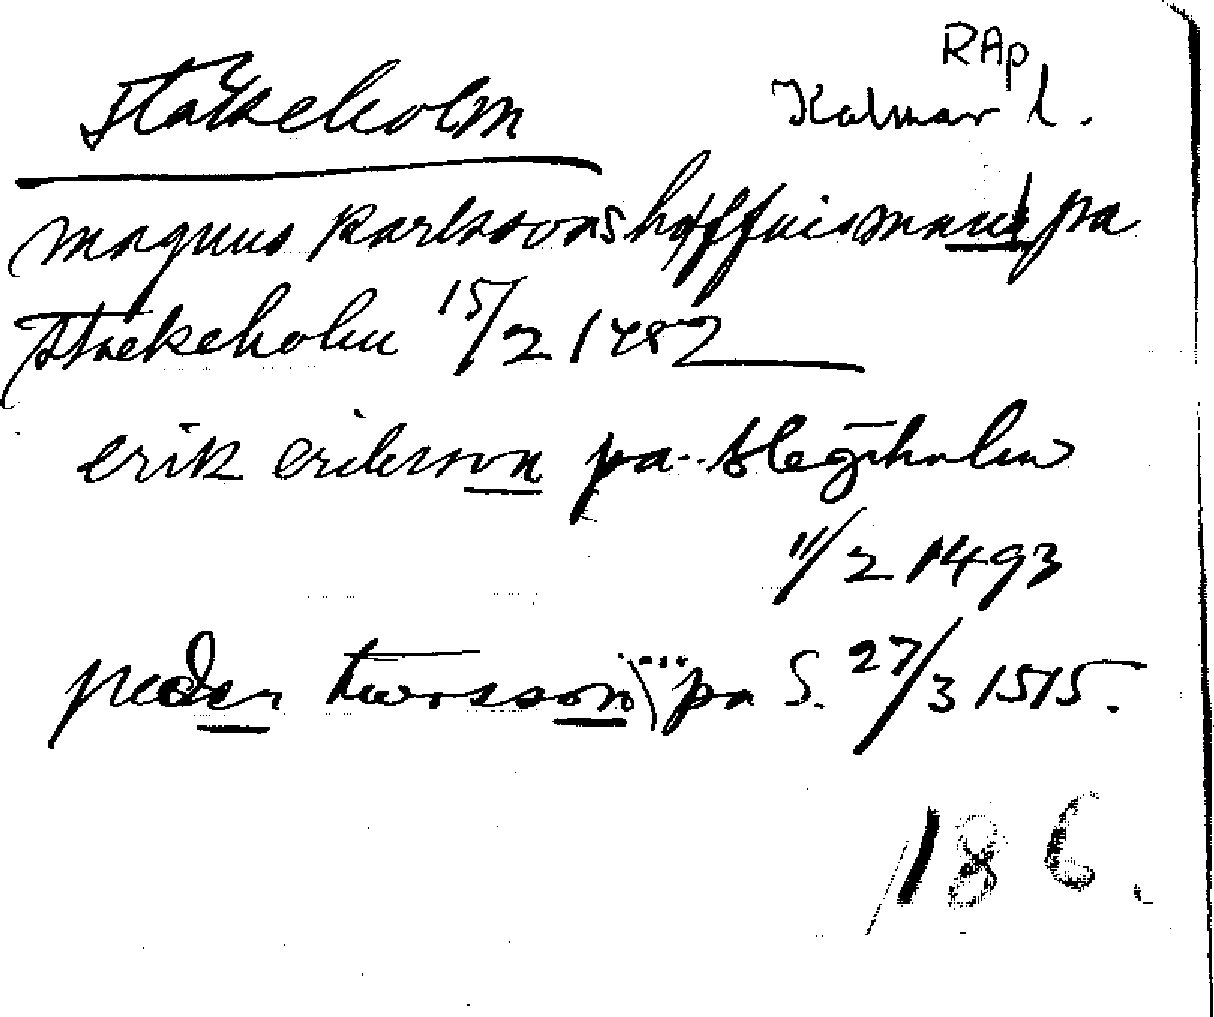 RAp
Stækeholm Kalmar l.
magnus karlssons høffuismand pa
Stækeholm 15/2 1482
erik erikson pa Stegeholm
11/2 1493
peder turosson pa S. 27/3 1515.
186.